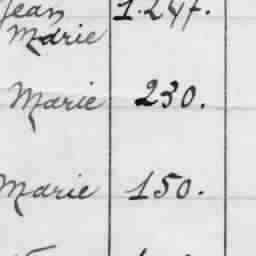 Jean 1.247.
Marie
Marie 230.
Marie 150.